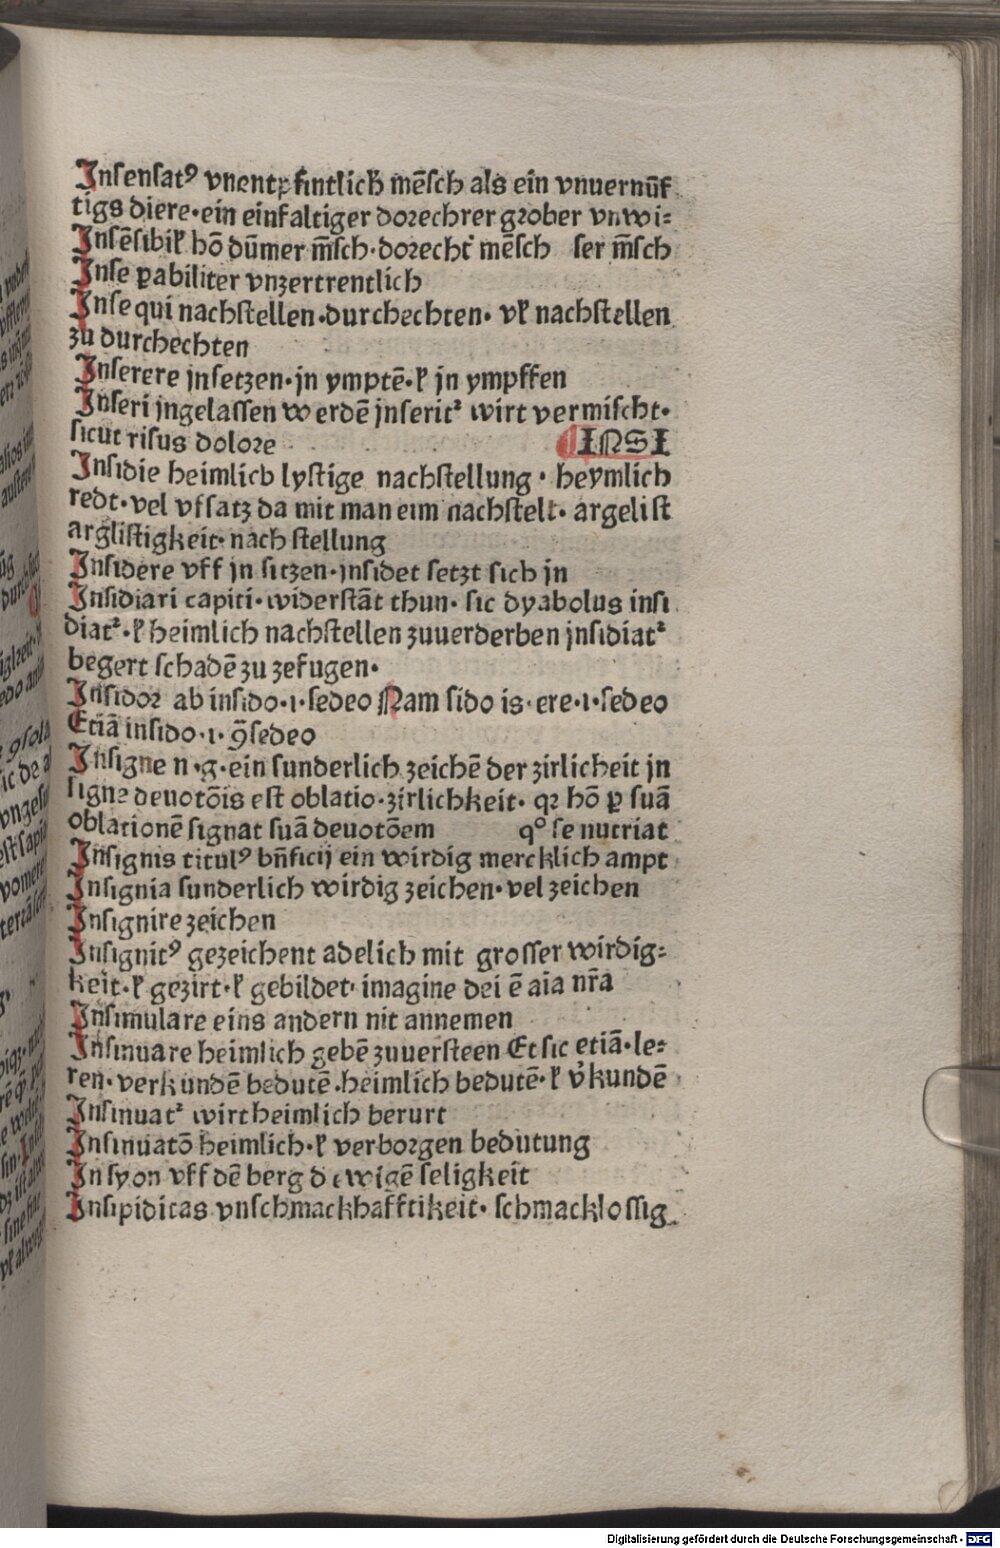 Jnſenſatꝰ vnentpfintlich mēſch als ein vnuernūf
tigs diere·ein einfaltiger dorechrer grober vnwi⸗
Jnſēſibiľ hō dūmer m̄ſch·dorechť mēſch ſer m̄ſch
Jnſe ꝑabiliter vnzertrentlich
Jnſequi nachſtellen·durchechten· vľ nachſtellen
zu durchechten
Jnſerere jnſetzen·jn ymptē·ľ jn ympffen
Jnſeri jngelaſſen werdē jnſeritᷣ wirt vermiſcht·
ſicut riſus dolore INSI
Jnſidie heimlich lyſtige nachſtellung · heymlich
redt·vel vfſatz da mit man eim nachſtelt· argeliſt
argliſtigkeit·nach ſtellung
Jnſidere vff jn ſitzen·jnſidet ſetzt ſich jn
Jnſidiari capiti·widerſtāt thun· ſic dyabolus inſi
diatᷣ·ľ heimlich nachſtellen zuuerderben jnſidiatᷣ
begert ſchadē zu zefugen·
Jnſidor ab inſido·i·ſedeo Nam ſido is·ere·i·ſedeo
Etiā inſido·i·ꝯſedeo
Jnſigne n·g·ein ſunderlich zeichē der zirlicheit jn
ſigne deuotōis eſt oblatio·zirlichkeit· qꝛ hō ꝑ ſuā
oblationē ſignat ſuā deuotōem qº ſe nutriat
Jnſignis titulꝰ bn̄ficij ein wirdig mercklich ampt
Jnſignia ſunderlich wirdig zeichen·vel zeichen
Jnſignire zeichen
Jnſignitꝰ gezeichent adelich mit groſſer wirdig⸗
keit·ľ gezirt·ľ gebildet· imagine dei ē aīa nr̄a
Jnſimulare eins andern nit annemen
Jnſinuare heimlich gebē zuuerſteen Et ſic etiā·le⸗
ren·verkundē bedutē·heimlich bedutē·ľ v̓kundē
Jnſinuatᷣ wirt heimlich berurt
Jnſinuatō heimlich·ľ verborgen bedutung
Jn ſyon vff dē berg d ewigē ſeligkeit
Jnſipiditas vnſchmackhafftikeit· ſchmackloſſig
Digitalisierung gefördert durch die Deutsche Forschungsgemeinschaft - DFG